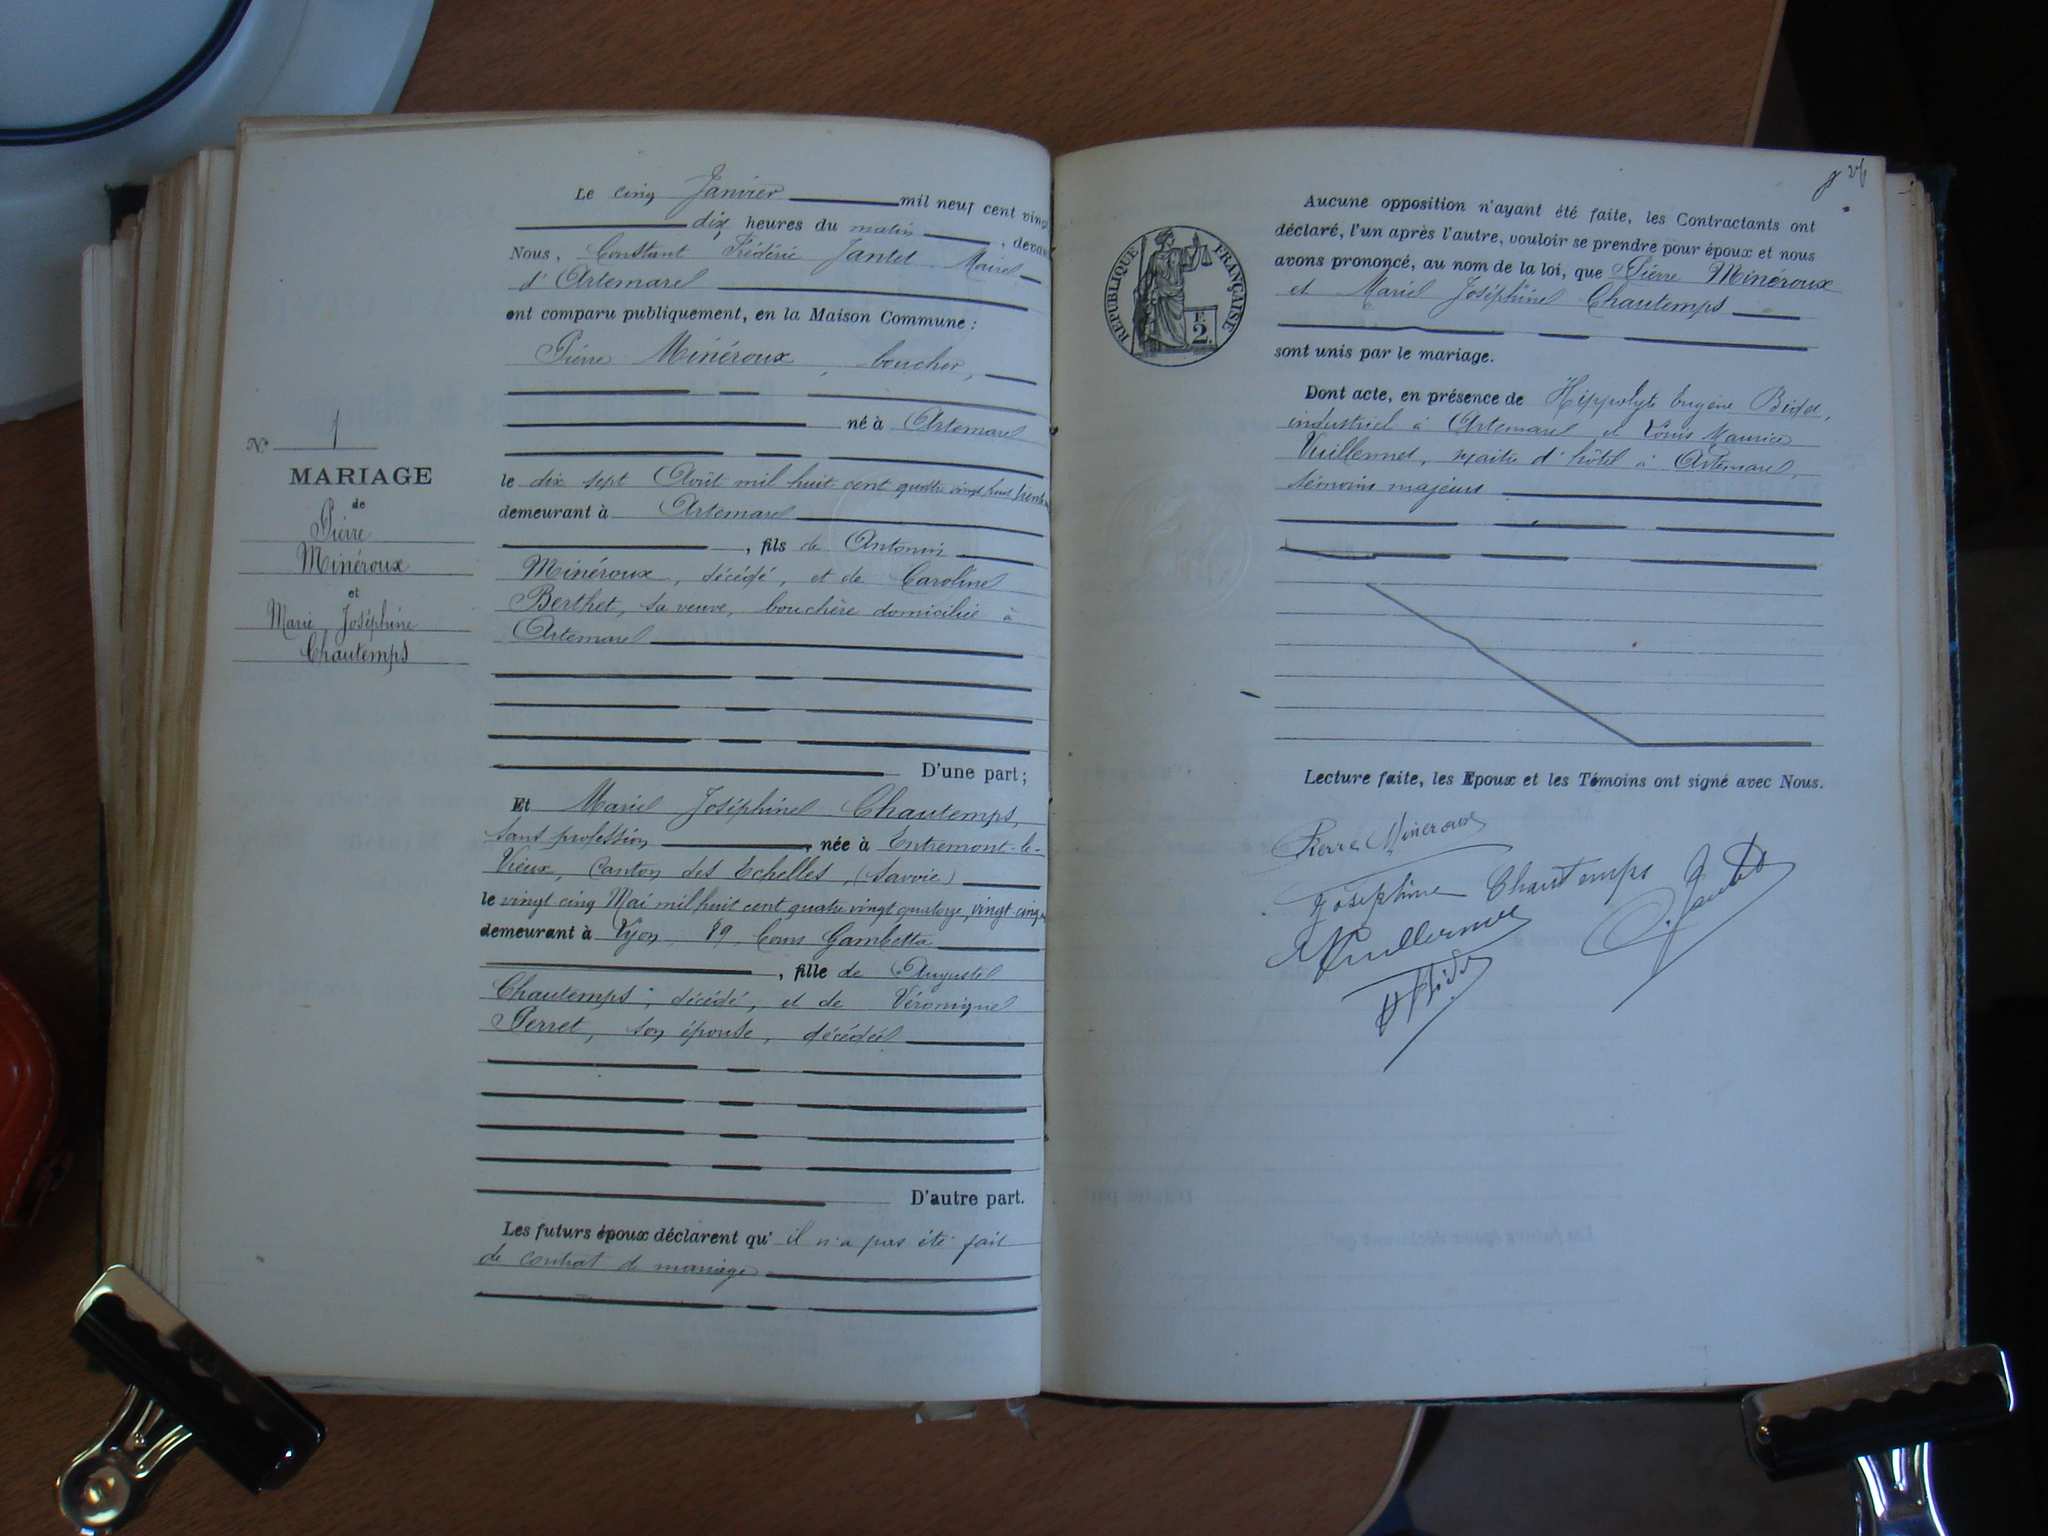 Le cinq Janvier mil neuf cent vingt
dix heures du matin, devant
Nous, Constant Frédéric Jantet Maire
d'Artemare
ont comparu publiquement, en la Maison Commune :
Pierre Minéroux, boucher,
né à Artemare
le dix sept Août mil huit cent quatre vingt
demeurant à Artemare
, fils de Antonin
Minéroux, décédé, et de Caroline
Berthet, sa veuve, bouchère domiciliée à
Artemare
D'une part ;
Et Marie Joséphine Chautemps,
sans profession, née à Entremont-le-
Vieux, Canton des Echelles, (Savoie)
le vingt cinq Mai mil huit cent quatre vingt quatorze, vingt cinq
demeurant à Lyon, 89, Cours Gambetta
, fille de Auguste
Chautemps, décédé, et de Véronique
Perret, son épouse, décédée
D'autre part.
Les futurs époux déclarent qu'il n'a pas été fait
de contrat de mariage
N° 1
MARIAGE
de
Pierre
Minéroux
et
Marie Joséphine
Chautemps
RÉPUBLIQUE FRANÇAISE
F.
2.
Aucune opposition n'ayant été faite, les Contractants ont
déclaré, l'un après l'autre, vouloir se prendre pour époux et nous
avons prononcé, au nom de la loi, que Pierre Minéroux
et Marie Joséphine Chautemps
sont unis par le mariage.
Dont acte, en présence de Hippolyte Eugène
industriel à Artemare et Louis Maurice
Vuillermet, maître d'hôtel à Artemare,
témoins majeurs
Lecture faite, les Epoux et les Témoins ont signé avec Nous.
Pierre Minéroux
Joséphine Chautemps
Jantet
Vuillermet